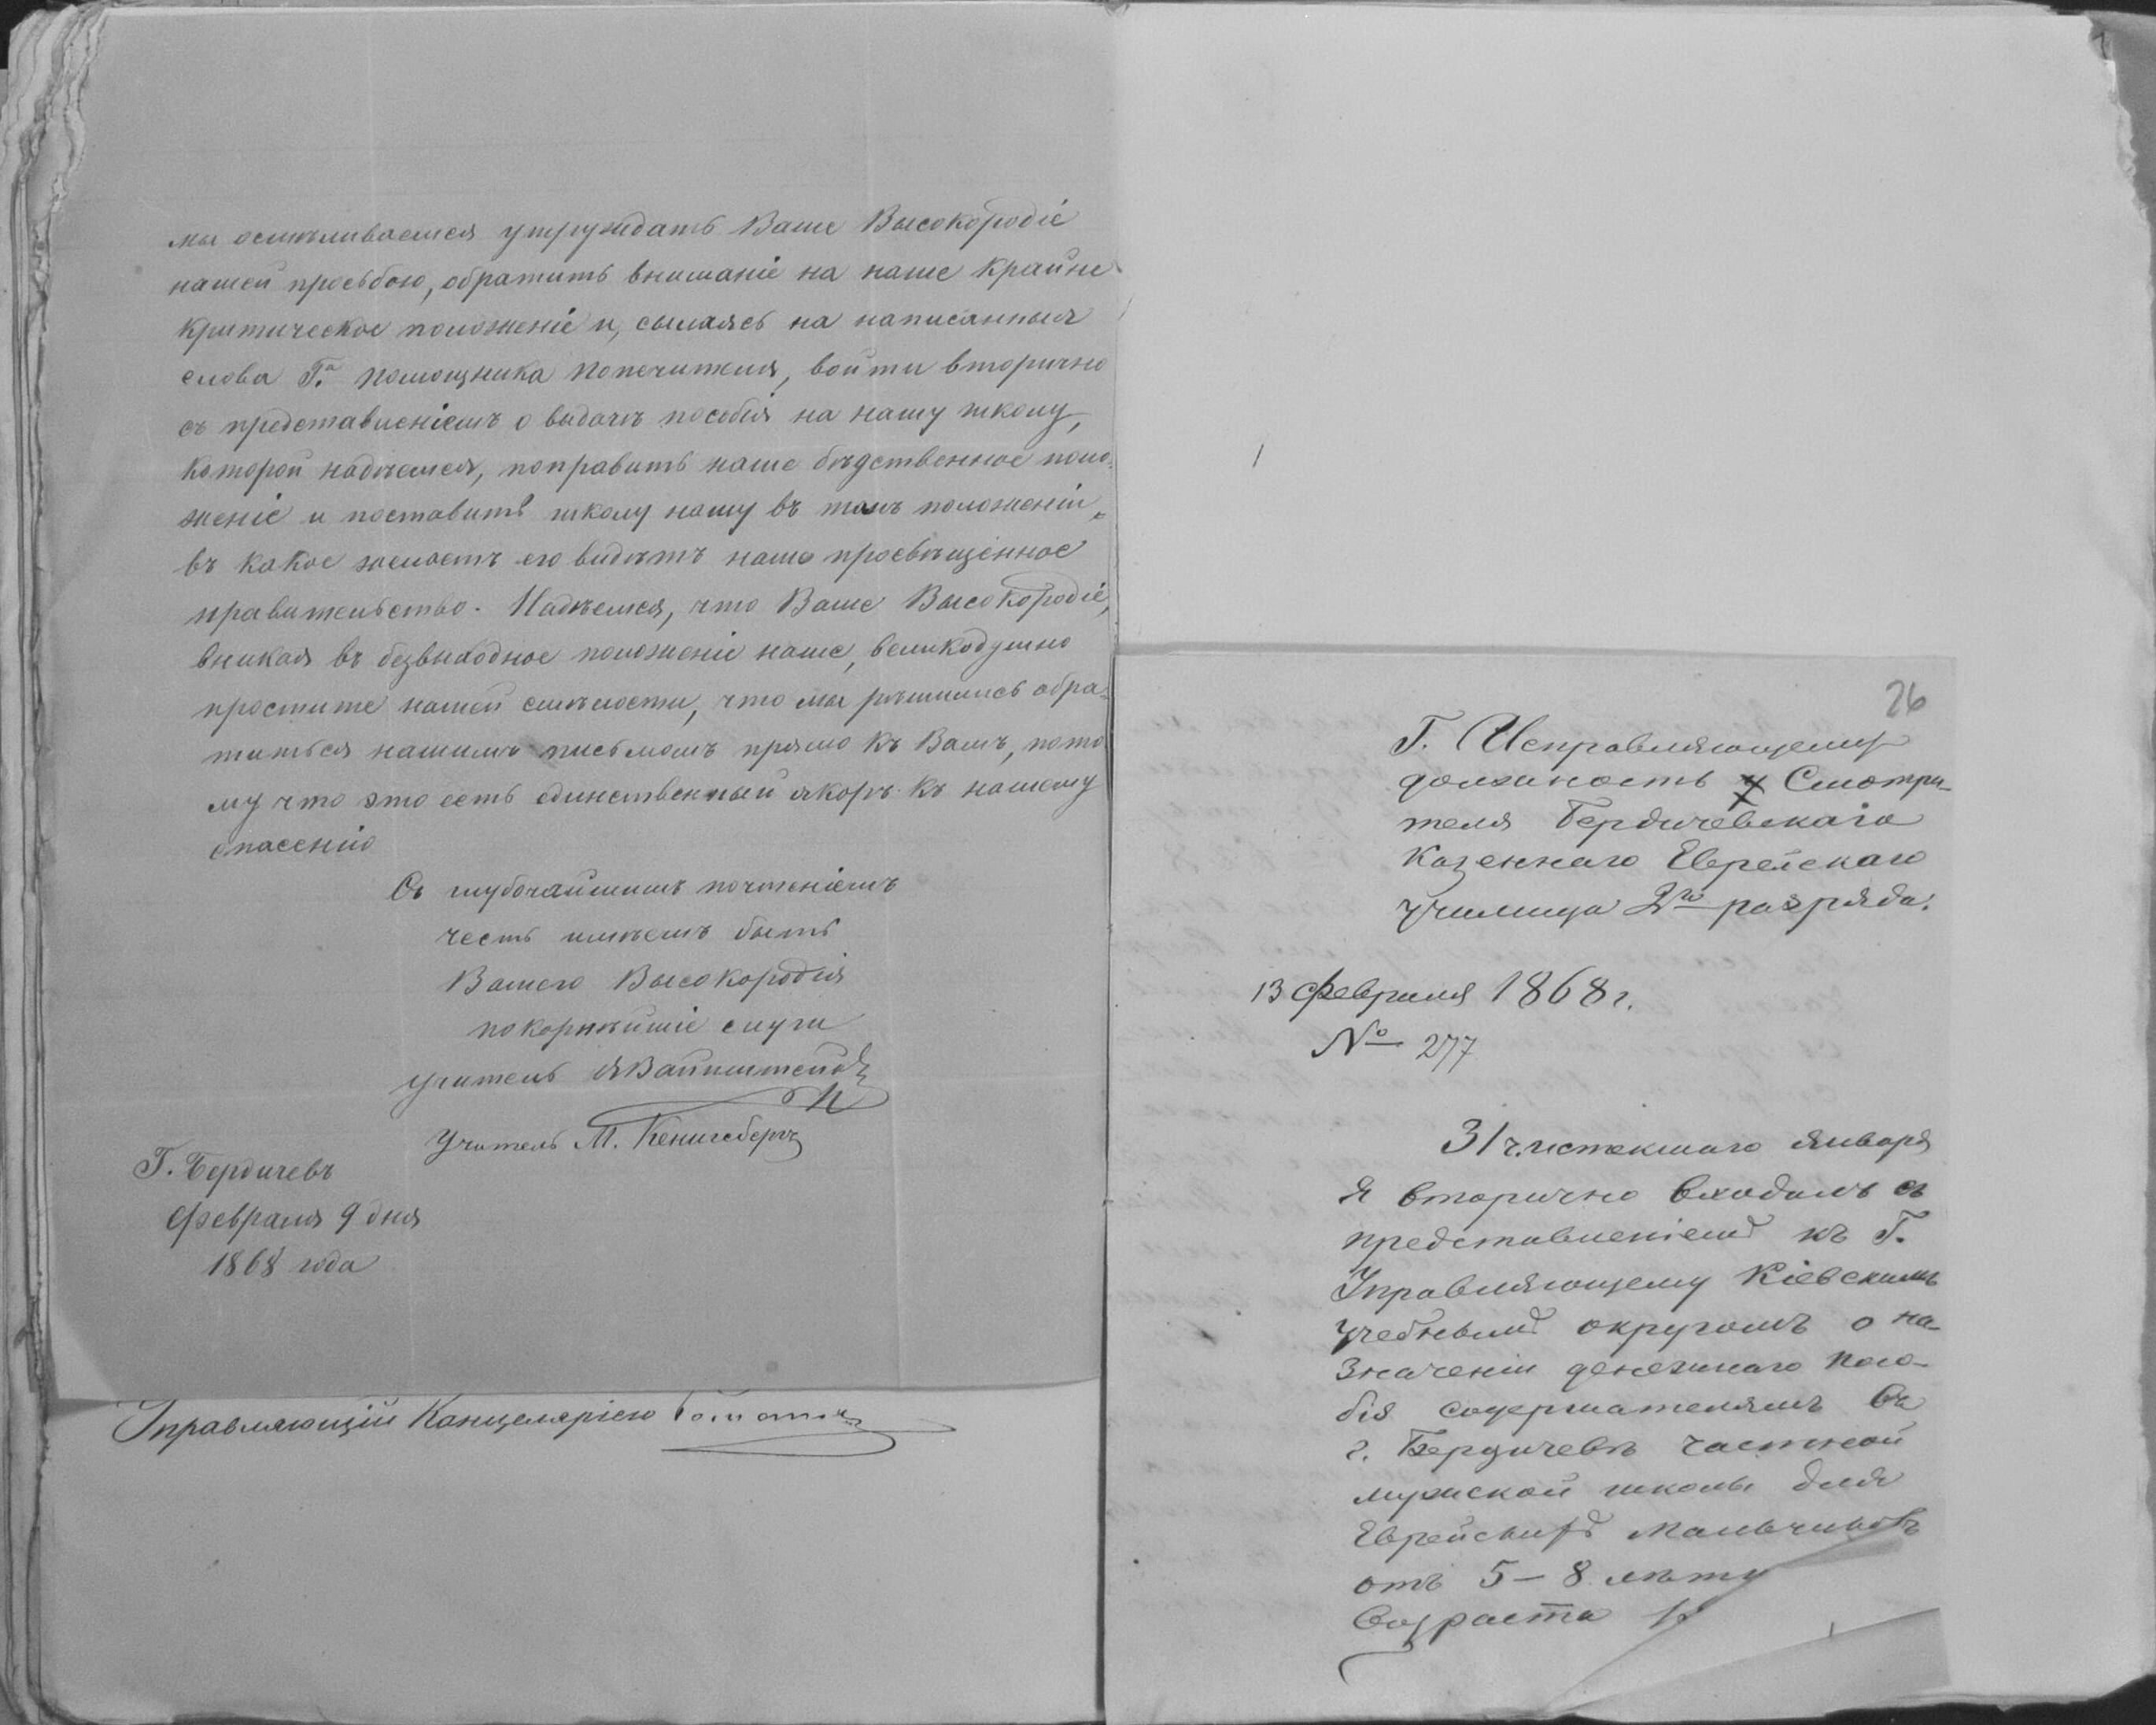 мы осмѣливаемся утруждать Ваше Высокородіе
нашей просьбою, обратить вниманіе на наше крайне
критическое положеніе и, сылаясь на написанныя
слова Г.а помощника попечителя, войти вторично
съ представленіемъ о выдачѣ пособія на нашу школу,
которой надѣемся, поправить наше бѣдственное поло-
женіе и поставить школу нашу въ томъ положеніи,
въ какое желаетъ его видѣть наше просвѣщенное
правительство. Надѣемся, что Ваше Высокородіе,
вникая въ безвыходное положеніе наше, великодушно
простите нашей смѣлости, что мы рѣшились обра-
титься нашимъ письмомъ прямо къ Вамъ, пото
му что это есть единственный якорь къ нашему
спасенію
Съ глубочайшимъ почтеніемъ
честь имѣемъ быть
Вашего Высокородія
покорнѣйшіе слуги
учитель Я Вайнштейнъ
И
Учитель М. Кенигсбергъ
Г. Бердичевъ
Февраля 9 дня
1868 года
Управляющій Канцеляріею
26
Г. Исправляющему
должность Смотри-
теля Бердичевскаго
Казеннаго Еврейскаго
училища 2го разряда.
13 Февраля 1868 г.
№ 277
31 ч. истекшаго января
я вторично входилъ съ
представленіемъ къ Г.
Управляющему Кіевскимъ
учебнымъ округомъ о на-
значеніи денежнаго посо-
бія содержателямъ въ
г. Бердичевѣ частной
мужской школы для
Еврейскихъ мальчиковъ
отъ 5-8 лѣтн
возраста